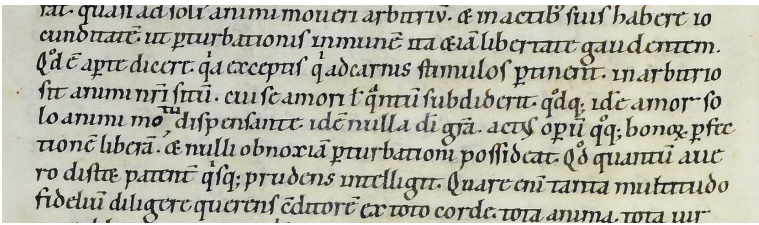 rat. quasi ad soli animi moueri arbitriū. & in actibꝰ suis habere io
cunditatē. ut ꝑturbationis inmunē ita &iā libertate gaudentem.
Qđ ē aꝑte dicere. qͥa exceptis qͥ ad carnis stimulos ꝑtinent. in arbitrio
sit animi nr̄i sitū. cui se amori ł qͣntū subdiderit. qđq; idē amor so
lo animi motu dispensante. idē nulla dī gr̄a. actꝰ oꝑū qͦq; bonoꝝ ꝑfec
tionē liberā. & nulli obnoxiā ꝑturbationi possideat. Qđ quantū a ue
ro distet patent͛ qͥsq; prudens intelligit. Quare eni tanta multitudo
fideliū diligere querens c̄ditorē ex toto corde. tota anima. tota uir